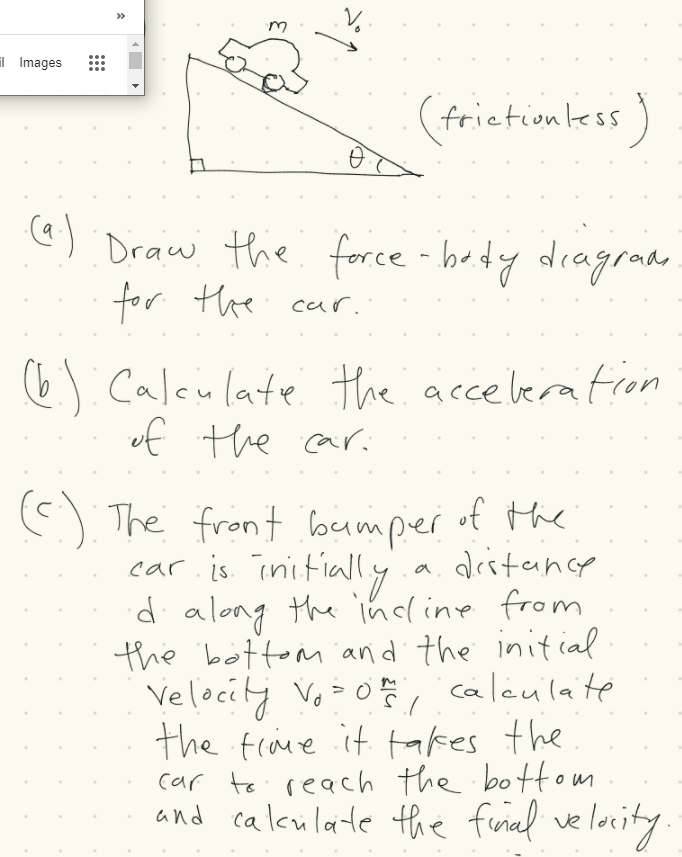 »
il Images
m V₀
(frictionless)
θ
(a) Draw the force-body diagram
for the car.
(b) Calculate the acceleration
of the car.
(c) The front bumper of the
car is initially a distance
d along the incline from
the bottom and the initial
velocity V₀ = 0 m/s, calculate
the time it takes the
car to reach the bottom
and calculate the final velocity.